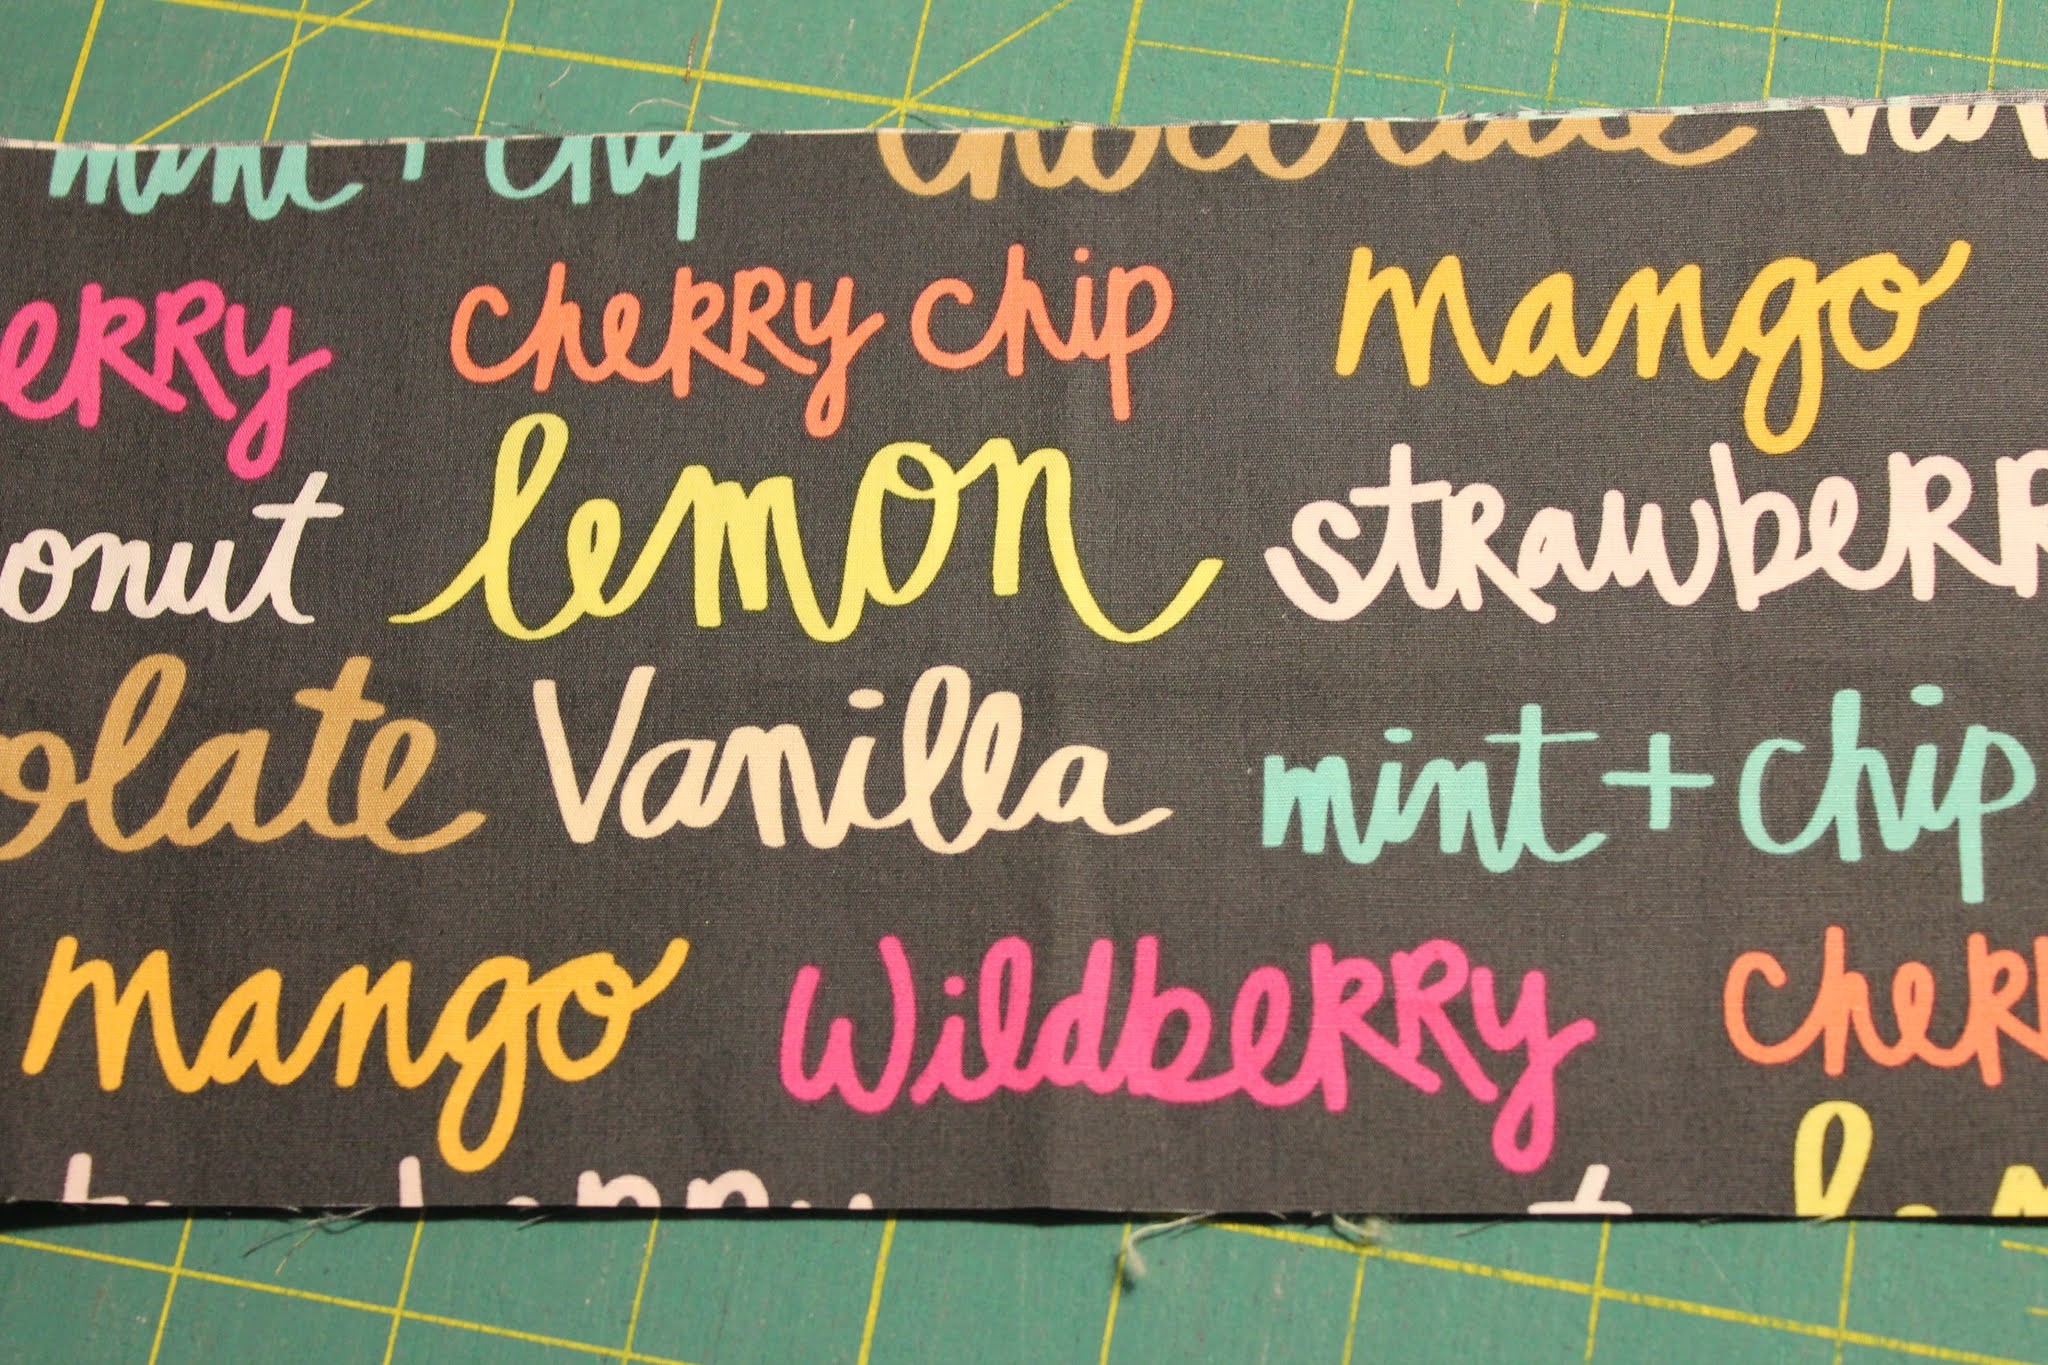 mint + chip chocolate
erry cherry chip mango
onut lemon strawberr
olate Vanilla mint + chip
mango Wildberry cherr